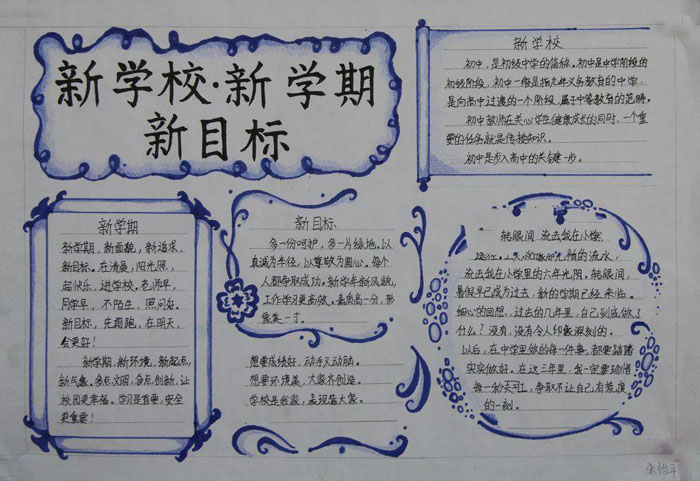 新学校·新学期
新目标
新学校
初中，是初级中学的简称。初中是中学阶段的
初级阶段，初中一般是指九年义务教育的中学，
是向高中过渡的一个阶段，属于中等教育的范畴。
初中教师在关心学生健康成长的同时，一个重
要的任务就是传授知识。
初中是步入高中的关键一步。
新学期
新学期，新面貌，新追求，
新目标。在清晨，阳光照，
起快乐，进学校。老师早，
同学早，不陌生，照问好。
新目标，先跑跑，在明天，
会更好！
新学期，新环境，新起点，
新气象。多点文明，多点创新，让
校园更幸福。学习是首要，安全
更重要！
新目标
多一份呵护，多一片绿地。以
真诚为半径，以尊敬为圆心。每个
人都争取成功。新学年新风貌，
工作学习更高效。素质高一分，形
象美一寸。
想要成绩好，动手又动脑。
想要环境美，大家齐创造。
学校是我家，表现靠大家。
转眼间 流去我在小学
的流水，
流去我在小学里的六年光阴。转眼间，
暑假早已成为过去，新的学期已经来临。
细心的回想，过去的几年里，自己到底做了
什么？没有，没有令人印象深刻的。
以后，在中学里做的每一件事，都要踏踏
实实做好。在这三年里，我一定要珍惜
每一秒，争取不让自己有荒废
的一刻。